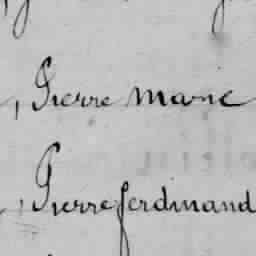 , Pierre marie
, Pierre ferdinand